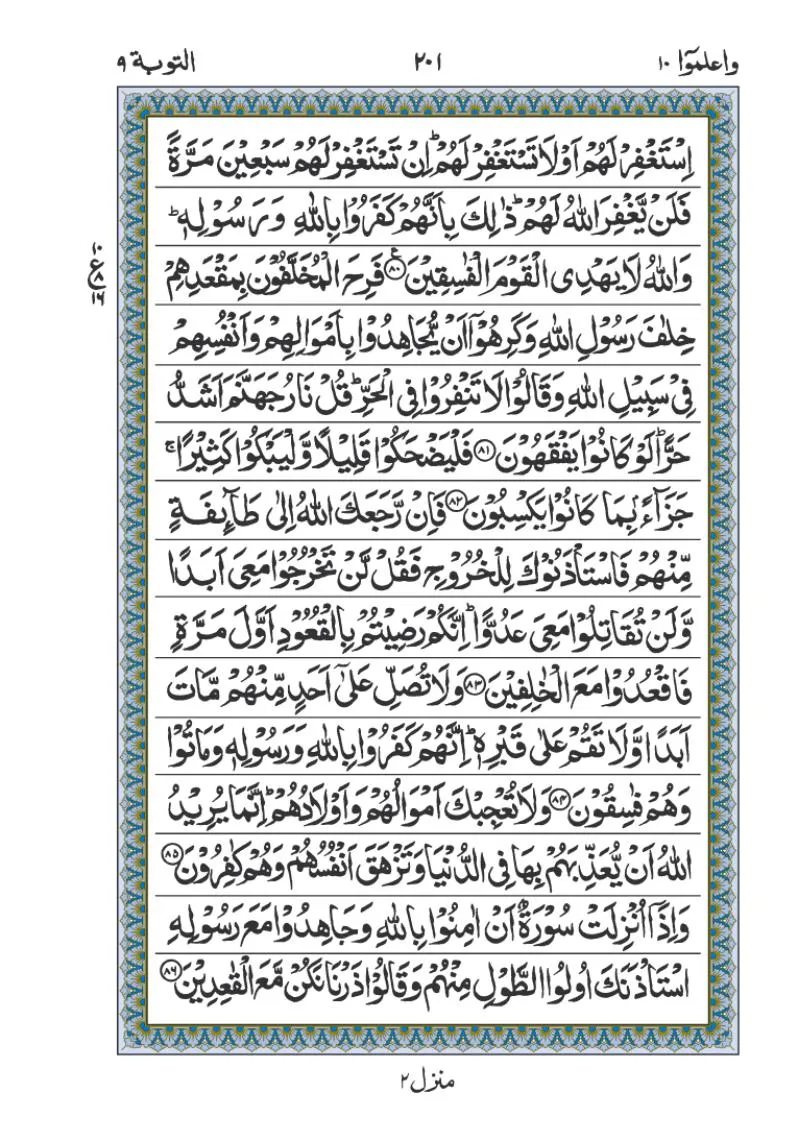 واعلموٓا ١٠ ٢٠١ التوبة ٩
اِسْتَغْفِرْ لَهُمْ اَوْ لَا تَسْتَغْفِرْ لَهُمْ ؕ اِنْ تَسْتَغْفِرْ لَهُمْ سَبْعِيْنَ مَرَّةً
فَلَنْ يَّغْفِرَ اللّٰهُ لَهُمْ ؕ ذٰلِكَ بِاَنَّهُمْ كَفَرُوْا بِاللّٰهِ وَ رَسُوْلِهٖ ؕ
وَاللّٰهُ لَا يَهْدِى الْقَوْمَ الْفٰسِقِيْنَ ۧ ﴿۸۰﴾ فَرِحَ الْمُخَلَّفُوْنَ بِمَقْعَدِهِمْ
١٠ ع ٨ ١٦
خِلٰفَ رَسُوْلِ اللّٰهِ وَكَرِهُوْۤا اَنْ يُّجَاهِدُوْا بِاَمْوَالِهِمْ وَاَنْفُسِهِمْ
فِىْ سَبِيْلِ اللّٰهِ وَقَالُوْا لَا تَنْفِرُوْا فِى الْحَرِّ ؕ قُلْ نَارُ جَهَنَّمَ اَشَدُّ
حَرًّا ؕ لَوْ كَانُوْا يَفْقَهُوْنَ ﴿۸۱﴾ فَلْيَضْحَكُوْا قَلِيْلًا وَّلْيَبْكُوْا كَثِيْرًا ۚ
جَزَآءًۢ بِمَا كَانُوْا يَكْسِبُوْنَ ﴿۸۲﴾ فَاِنْ رَّجَعَكَ اللّٰهُ اِلٰى طَآئِفَةٍ
مِّنْهُمْ فَاسْتَاْذَنُوْكَ لِلْخُرُوْجِ فَقُلْ لَّنْ تَخْرُجُوْا مَعِىَ اَبَدًا
وَّلَنْ تُقَاتِلُوْا مَعِىَ عَدُوًّا ؕ اِنَّكُمْ رَضِيْتُمْ بِالْقُعُوْدِ اَوَّلَ مَرَّةٍ
فَاقْعُدُوْا مَعَ الْخٰلِفِيْنَ ﴿۸۳﴾ وَلَا تُصَلِّ عَلٰٓى اَحَدٍ مِّنْهُمْ مَّاتَ
اَبَدًا وَّلَا تَقُمْ عَلٰى قَبْرِهٖ ؕ اِنَّهُمْ كَفَرُوْا بِاللّٰهِ وَرَسُوْلِهٖ وَمَاتُوْا
وَهُمْ فٰسِقُوْنَ ﴿۸۴﴾ وَلَا تُعْجِبْكَ اَمْوَالُهُمْ وَاَوْلَادُهُمْ ؕ اِنَّمَا يُرِيْدُ
اللّٰهُ اَنْ يُّعَذِّبَهُمْ بِهَا فِى الدُّنْيَا وَتَزْهَقَ اَنْفُسُهُمْ وَهُمْ كٰفِرُوْنَ ﴿۸۵﴾
وَاِذَآ اُنْزِلَتْ سُوْرَةٌ اَنْ اٰمِنُوْا بِاللّٰهِ وَجَاهِدُوْا مَعَ رَسُوْلِهِ
اسْتَاْذَنَكَ اُولُوا الطَّوْلِ مِنْهُمْ وَقَالُوْا ذَرْنَا نَكُنْ مَّعَ الْقٰعِدِيْنَ ﴿۸۶﴾
منزل ٢